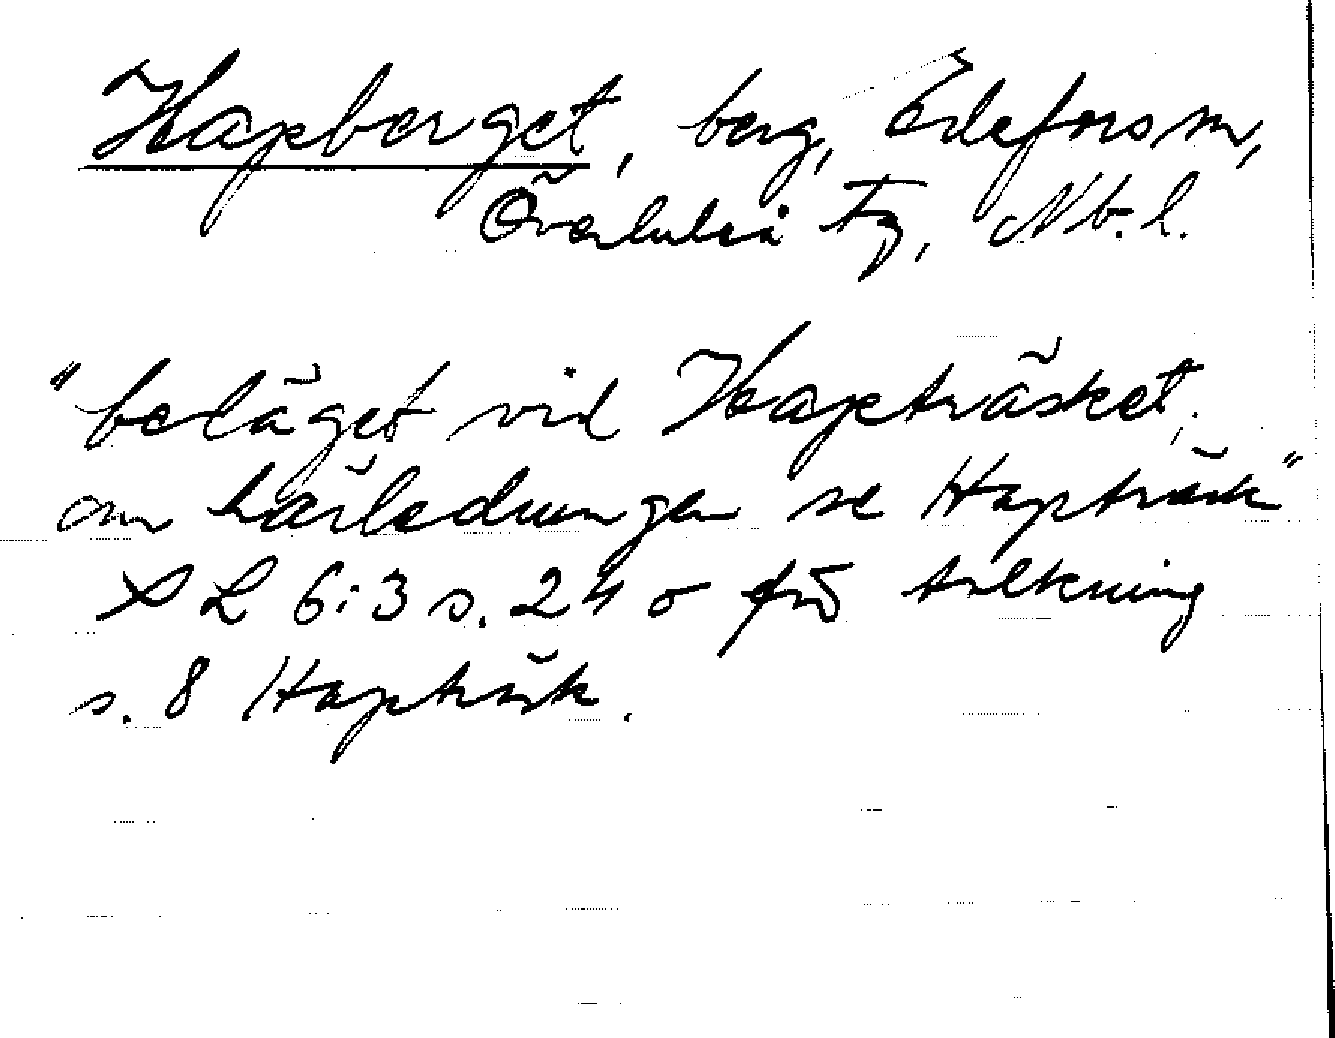 Hapberget, berg, Edefors sn,
Överluleå tg, Nb. l.
"beläget vid Hapträsket,
om härledningen se Hapträsk"
L 6:3 s. 24 o för tolkning
s. 8 Hapträsk.